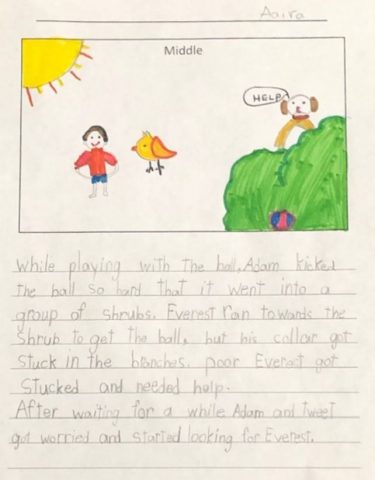 Aaira
Middle
HELP
While playing with the ball, Adam kicked
the ball so hard that it went into a
group of shrubs. Everest ran towards the
shrub to get the ball, but his collar got
stuck in the branches. poor Everest got
stucked and needed help.
After waiting for a while Adam and Tweet
got worried and started looking for Everest.